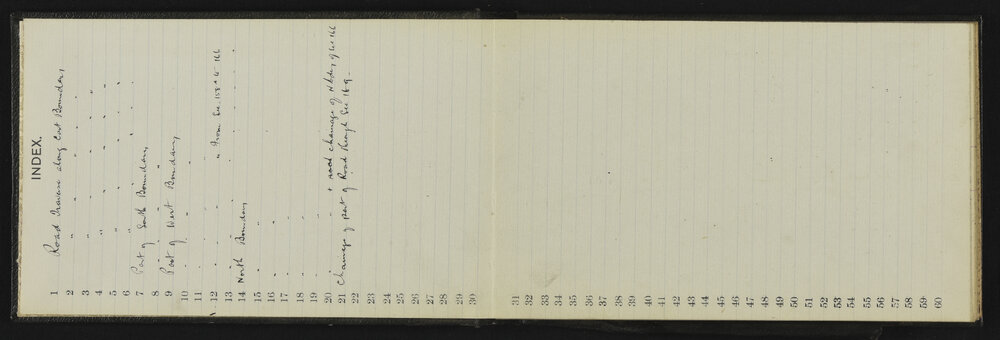 INDEX.
1 Road Traverse along East Boundary
2 " " " " "
3 " " " " "
4 " " " " "
5 " " " " "
6 " " " " "
7 Part of South Boundary
8 " " " "
9 Part of West Boundary
10 " " " "
11
12 " " From Sec. 158 to 166
13
14 North Boundary
15 " "
16 " "
17 " "
18 " "
19 " "
20 " " + road chainage of N bdy of Sec 166
21 Chainage of part of Road through Sec 169
22
23
24
25
26
27
28
29
30
31
32
33
34
35
36
37
38
39
40
41
42
43
44
45
46
47
48
49
50
51
52
53
54
55
56
57
58
59
60